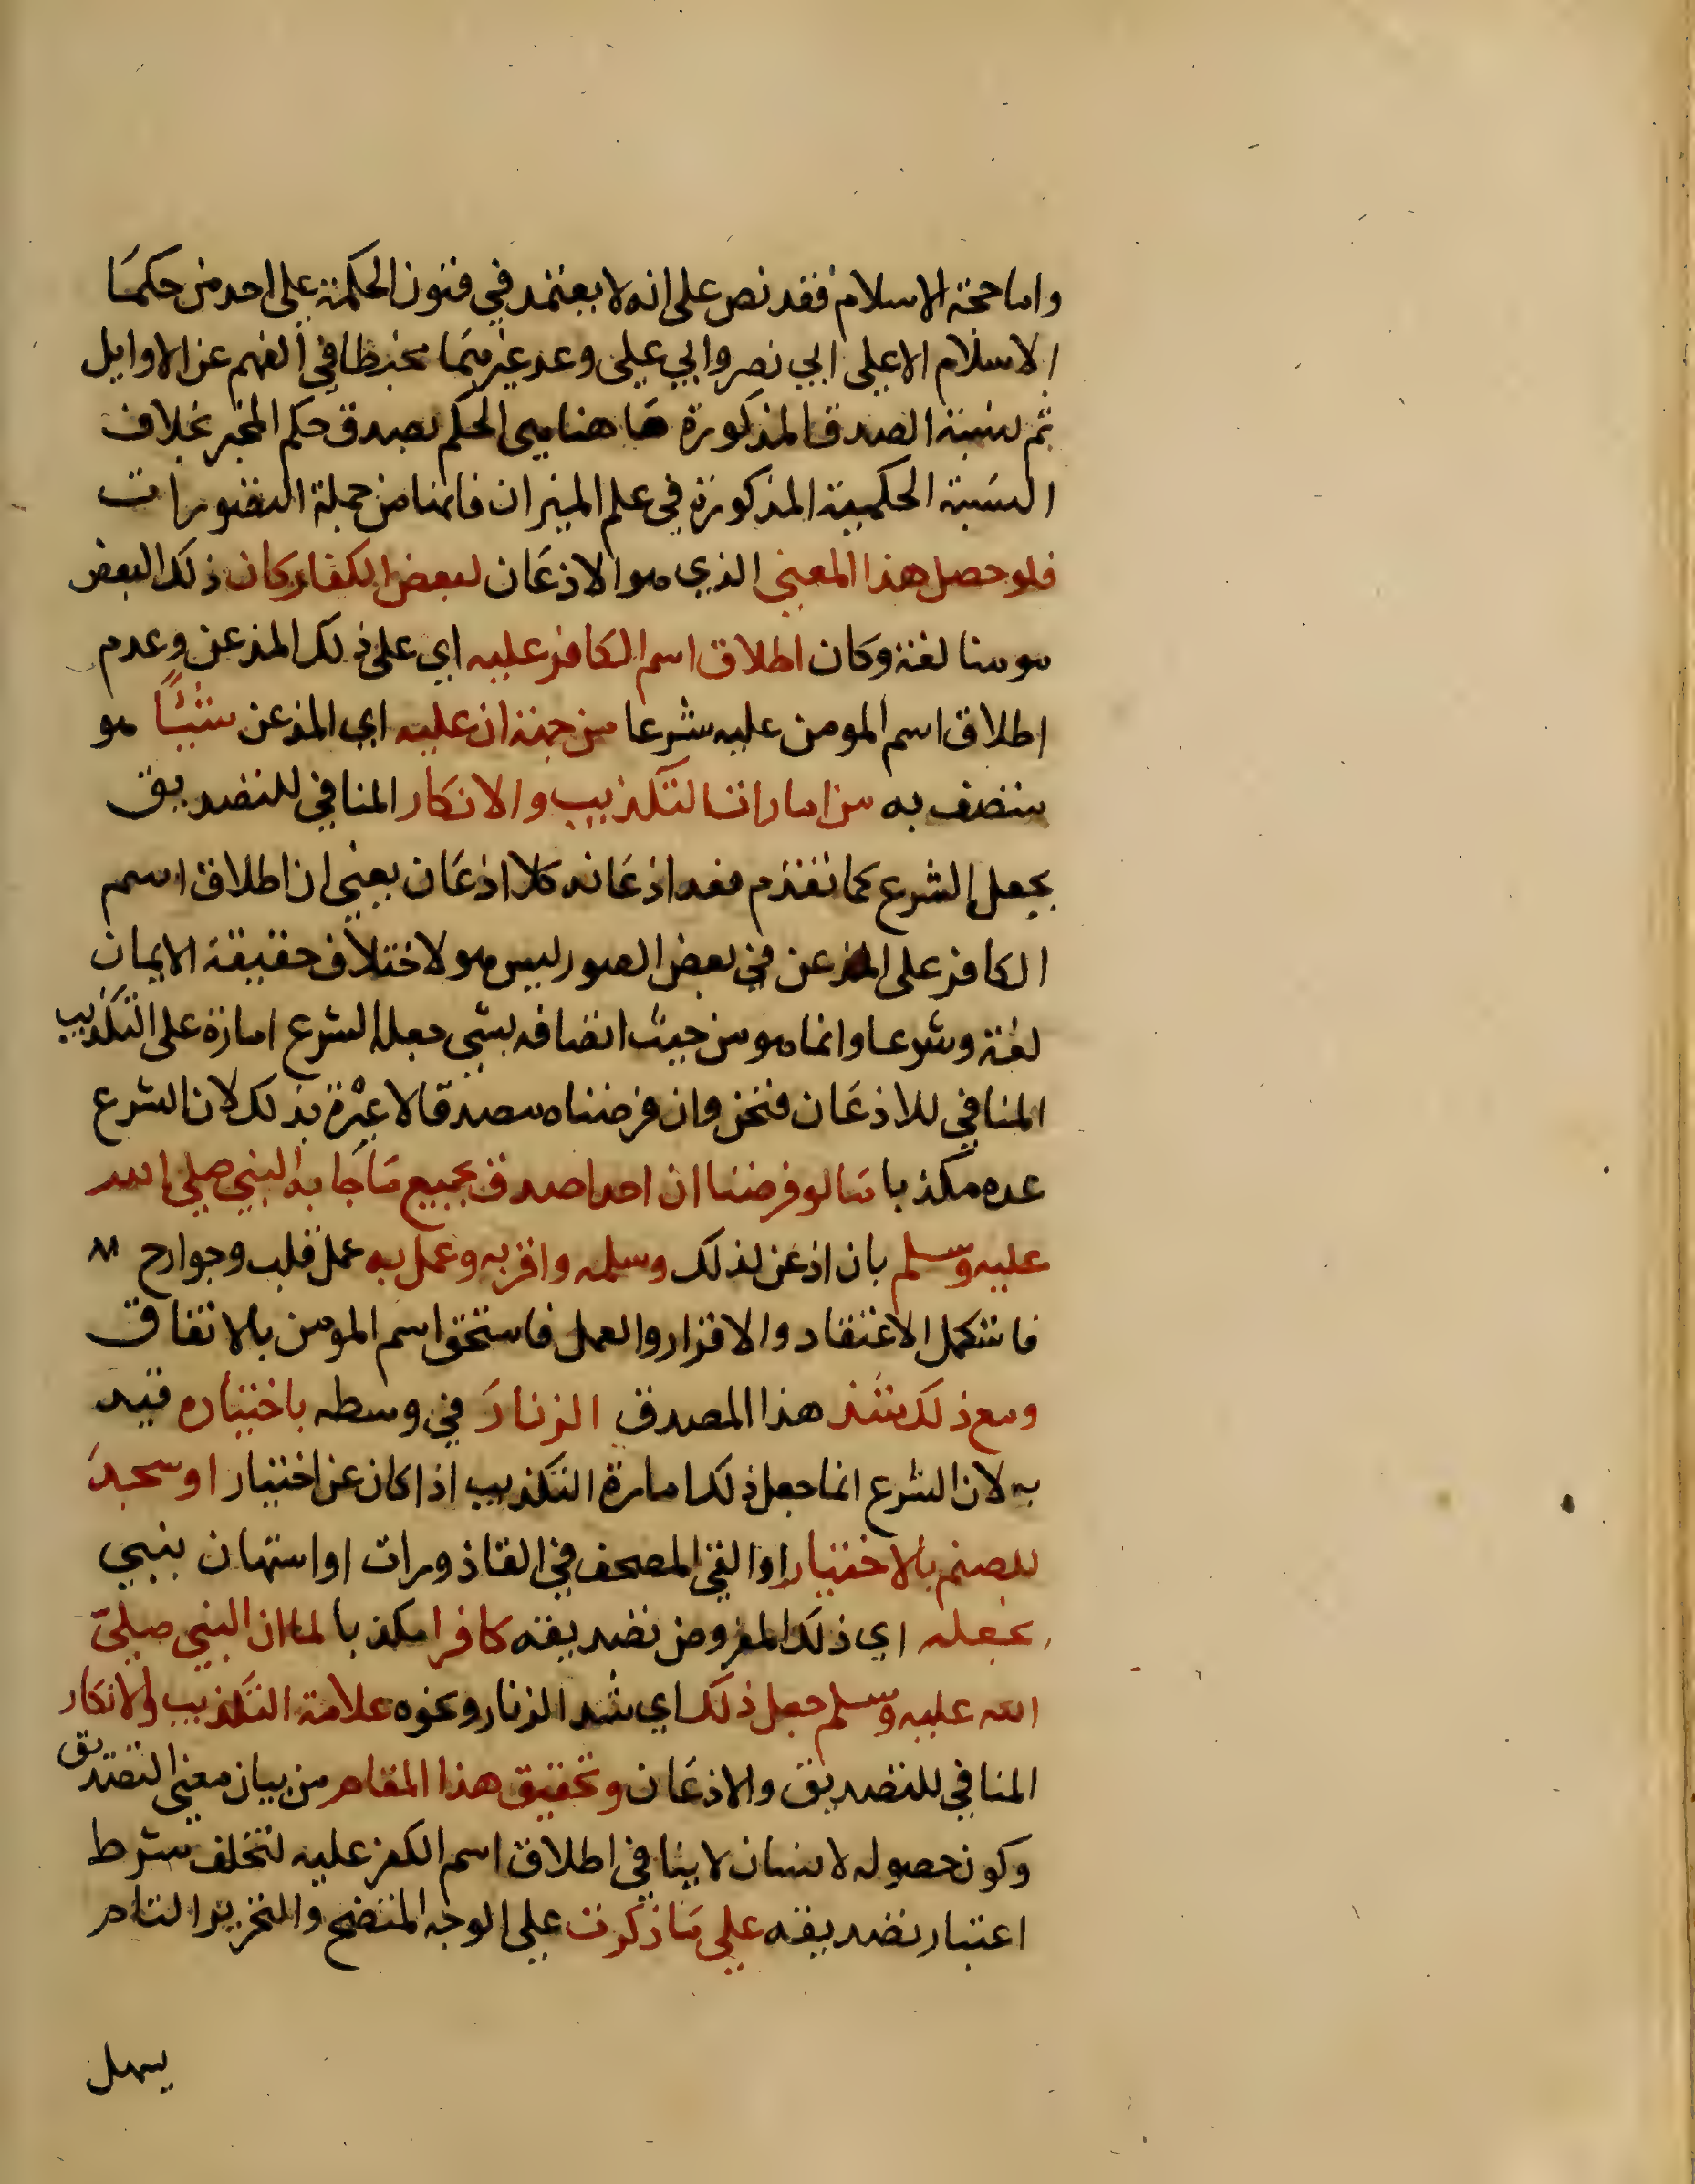 واما حجة الاسلام فقد نص على انه لا يعتمد في فنون الحكمة على احد من حكما
الاسلام الا على ابي نصر وابي على وعد غيرهما مخبطا في الفهم عن الاوايل
ثم نسبة الصدق المذكورة ها هنا هي الحكم بصدق حكم المخبر بخلاف
النسبة الحكمية المذكورة في علم الميزان فانها من جملة التصورات
فلو حصل هذا المعنى الذي هو الاذعان لبعض الكفار كان ذلك البعض
مومنا لغة وكان اطلاق اسم الكافر عليه اي على ذلك المذعن وعدم
اطلاق اسم المومن عليه شرعا من جهة ان عليه اي المذعن شيئًا هو
متصف به من امارات التكذيب والانكار المنافي للتصديق
بجعل الشرع كما تقدم فعد اذعانه كلا اذعان يعني ان اطلاق اسم
الكافر على المذعن في بعض الصور ليس هو لاختلاف حقيقة الايمان
لغة وشرعا وانما هو من حيث اتصافه بشي جعله الشرع امارة على التكذيب
المنافي للاذعان فنحن وان فرضناه مصدقا لا عبرة بذلك لان الشرع
عده مكذبا كما لو فرضنا ان احدا صدق بجميع ما جا به النبي صلى الله
عليه وسلم بان اذعن لذلك وسلمه واقر به وعمل به عمل قلب وجوارح
فاستكمل الاعتقاد والاقرار والعمل فاستحق اسم المومن بالاتفاق
ومع ذلك شد هذا المصدق الزنار في وسطه باختياره قيد
به لان الشرع انما جعل ذلك امارة التكذيب اذا كان عن اختيار او سجد
للصنم بالاختيار او القى المصحف في القاذورات او استهان بنبي
نجعله اي ذلك المفروض تصديقه كافرا مكذبا لما ان النبي صلى
الله عليه وسلم جعل ذلك اي شد الزنار ونحوه علامة التكذيب والانكار
المنافي للتصديق والاذعان وتحقيق هذا المقام من بيان معنى التصديق
وكون حصوله لانسان لا ينافي اطلاق اسم الكفر عليه لتخلف شرط
اعتبار تصديقه على ما ذكرت على الوجه المتضح والتحرير التام
يسهل